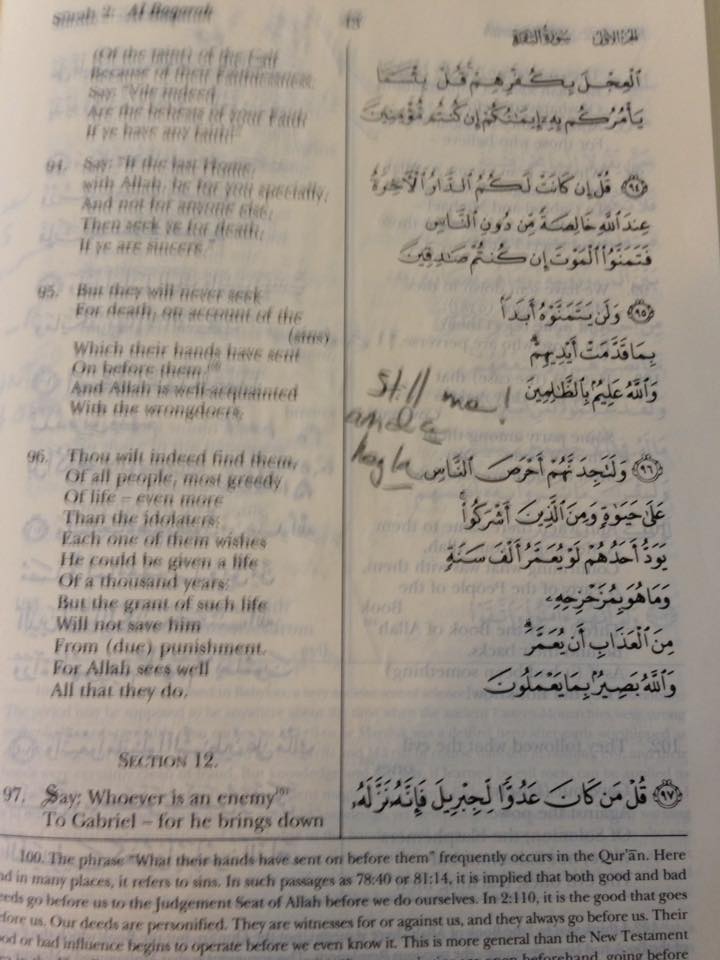 Surah 2: Al Baqarah
(Of the taint) of the Calf
Because of their Faithlessness.
Say: "Vile indeed
Are the behests of your Faith
If ye have any faith!"
94. Say: "If the last Home,
with Allah, be for you specially,
And not for anyone else,
Then seek ye for death,
If ye are sincere."
95. But they will never seek
For death, on account of the
(sins)
Which their hands have sent
On before them.¹⁰⁰
And Allah is well-acquainted
With the wrongdoers.
96. Thou wilt indeed find them,
Of all people, most greedy
Of life – even more
Than the idolaters:
Each one of them wishes
He could be given a life
Of a thousand years:
But the grant of such life
Will not save him
From (due) punishment.
For Allah sees well
All that they do.
SECTION 12.
97. Say: Whoever is an enemy¹⁰¹
To Gabriel – for he brings down
الجزء الأول سورة البقرة
الْعِجْلَ بِكُفْرِهِمْ قُلْ بِئْسَمَا
يَأْمُرُكُم بِهِ إِيمَانُكُمْ إِن كُنتُم مُّؤْمِنِينَ
﴿٩٤﴾ قُلْ إِن كَانَتْ لَكُمُ الدَّارُ الْآخِرَةُ
عِندَ اللَّهِ خَالِصَةً مِّن دُونِ النَّاسِ
فَتَمَنَّوُا الْمَوْتَ إِن كُنتُمْ صَادِقِينَ
﴿٩٥﴾ وَلَن يَتَمَنَّوْهُ أَبَدًا
بِمَا قَدَّمَتْ أَيْدِيهِمْ
وَاللَّهُ عَلِيمٌ بِالظَّالِمِينَ
still me!
﴿٩٦﴾ وَلَتَجِدَنَّهُمْ أَحْرَصَ النَّاسِ
عَلَىٰ حَيَوٰةٍ وَمِنَ الَّذِينَ أَشْرَكُوا
يَوَدُّ أَحَدُهُمْ لَوْ يُعَمَّرُ أَلْفَ سَنَةٍ
وَمَا هُوَ بِمُزَحْزِحِهِ
مِنَ الْعَذَابِ أَن يُعَمَّرَ
وَاللَّهُ بَصِيرٌ بِمَا يَعْمَلُونَ
﴿٩٧﴾ قُلْ مَن كَانَ عَدُوًّا لِّجِبْرِيلَ فَإِنَّهُ نَزَّلَهُ
100. The phrase "What their hands have sent on before them" frequently occurs in the Qur'ān. Here
in many places, it refers to sins. In such passages as 78:40 or 81:14, it is implied that both good and bad
go before us to the Judgement Seat of Allah before we do ourselves. In 2:110, it is the good that goes
us. Our deeds are personified. They are witnesses for or against us, and they always go before us. Their
or bad influence begins to operate before we even know it. This is more general than the New Testament
beforehand, going before